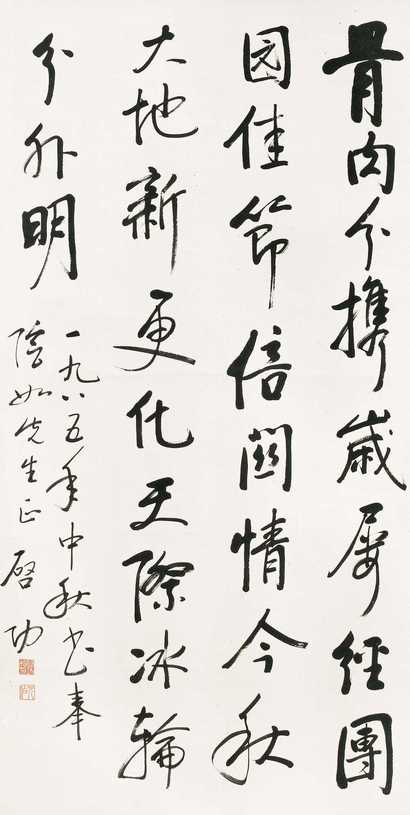 骨肉分攜歲屢經團
圓佳節倍關情今秋
大地新更化天際冰輪
分外明
一九八五年中秋書奉
如先生正 啓功